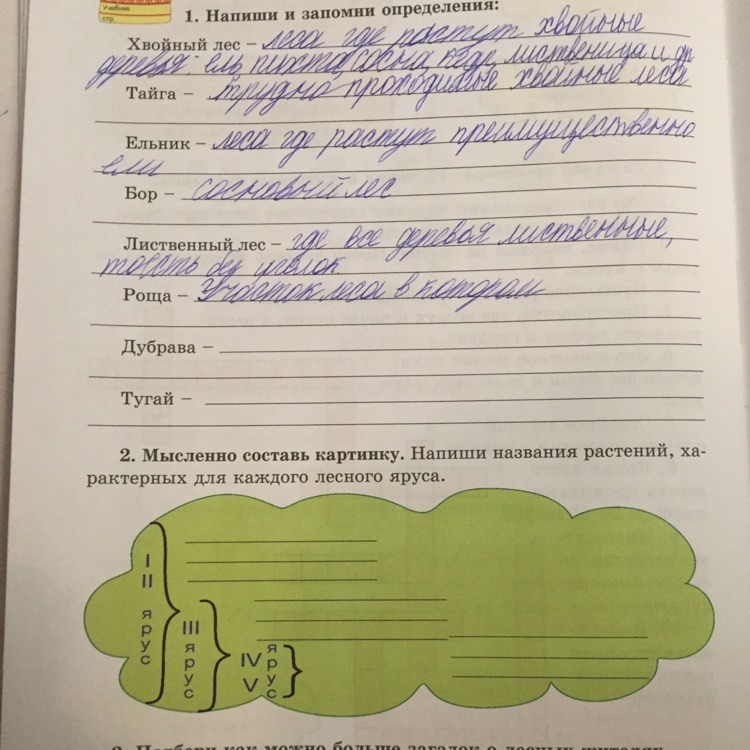 Учебник
стр.
1. Напиши и запомни определения:
Хвойный лес – леса где растут хвойные
деревья: ель, пихта, сосна, кедр, лиственица и др
Тайга – трудно проходимые хвойные леса
Ельник – леса где растут преимущественно
ели
Бор – сосновый лес
Лиственный лес – где все деревья лиственные,
тоесть без иголок.
Роща – Участок леса в котором
Дубрава –
Тугай –
2. Мысленно составь картинку. Напиши названия растений, ха-
рактерных для каждого лесного яруса.
I
II
ярус
III
ярус
IV
V
ярус
3. Подбери как можно больше загадок о лесных жителях